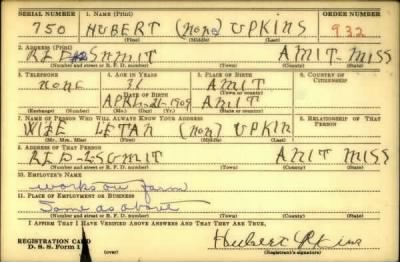 SERIAL NUMBER 1. NAME (Print) ORDER NUMBER
750 HUBERT (NONE) UPKINS 932
(First) (Middle) (Last)
2. ADDRESS (Print)
SMMIT AMIT-MISS
(Number and street or R. F. D. number) (Town) (County) (State)
3. TELEPHONE 4. AGE IN YEARS 5. PLACE OF BIRTH 6. COUNTRY OF CITIZENSHIP
NONE 31 AMIT
DATE OF BIRTH (Town or county)
APRL-21-1909 AMIT
(Exchange) (Number) (Mo.) (Day) (Yr.) (State or country)
7. NAME OF PERSON WHO WILL ALWAYS KNOW YOUR ADDRESS 8. RELATIONSHIP OF THAT PERSON
WIFE LETAN (NON) UPKIN
(Mr., Mrs., Miss) (First) (Middle) (Last)
9. ADDRESS OF THAT PERSON
AMIT MISS
(Number and street or R. F. D. number) (Town) (County) (State)
10. EMPLOYER'S NAME
works on farm
11. PLACE OF EMPLOYMENT OR BUSINESS
Same as above
(Number and street or R. F. D. number) (Town) (County) (State)
I AFFIRM THAT I HAVE VERIFIED ABOVE ANSWERS AND THAT THEY ARE TRUE.
REGISTRATION CARD
D. S. S. Form 1
Hubert Upkins
(Registrant's signature)